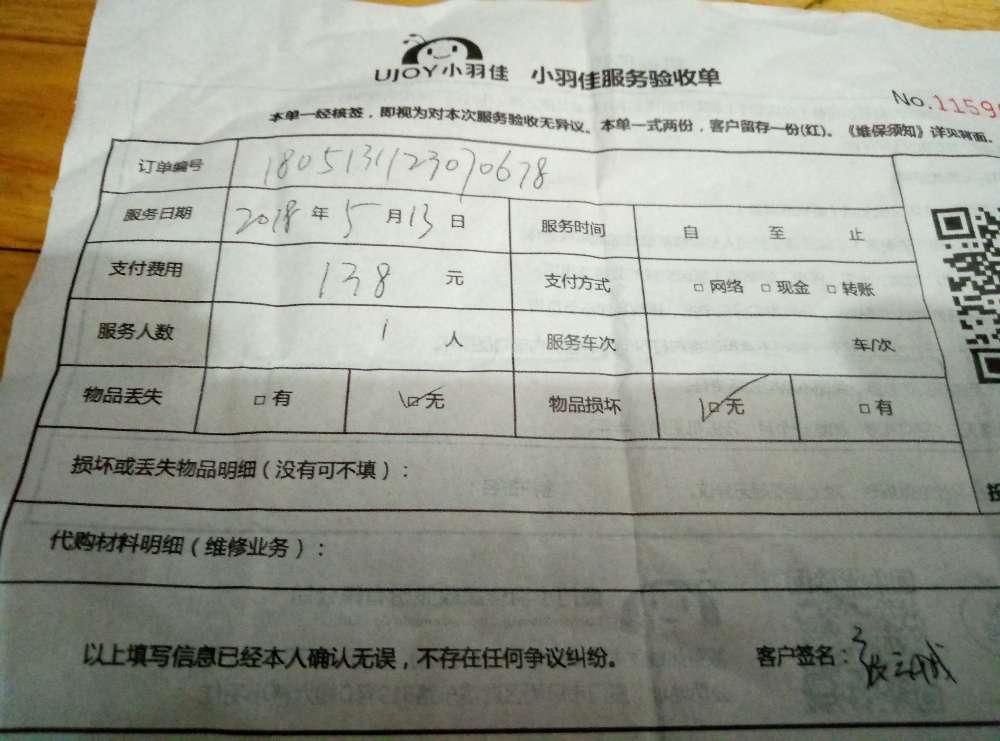 UJOY小羽佳 小羽佳服务验收单
No.1159
本单一经核签，即视为对本次服务验收无异议。本单一式两份，客户留存一份(红)。《维保须知》详见背面。
订单编号 1805131123070678
服务日期 2018年5月13日 服务时间 自 至 止
支付费用 138 元 支付方式 □网络 □现金 □转账
服务人数 1 人 服务车次 车/次
物品丢失 □有 □无 物品损坏 □无 □有
损坏或丢失物品明细（没有可不填）：
代购材料明细（维修业务）：
以上填写信息已经本人确认无误，不存在任何争议纠纷。 客户签名：